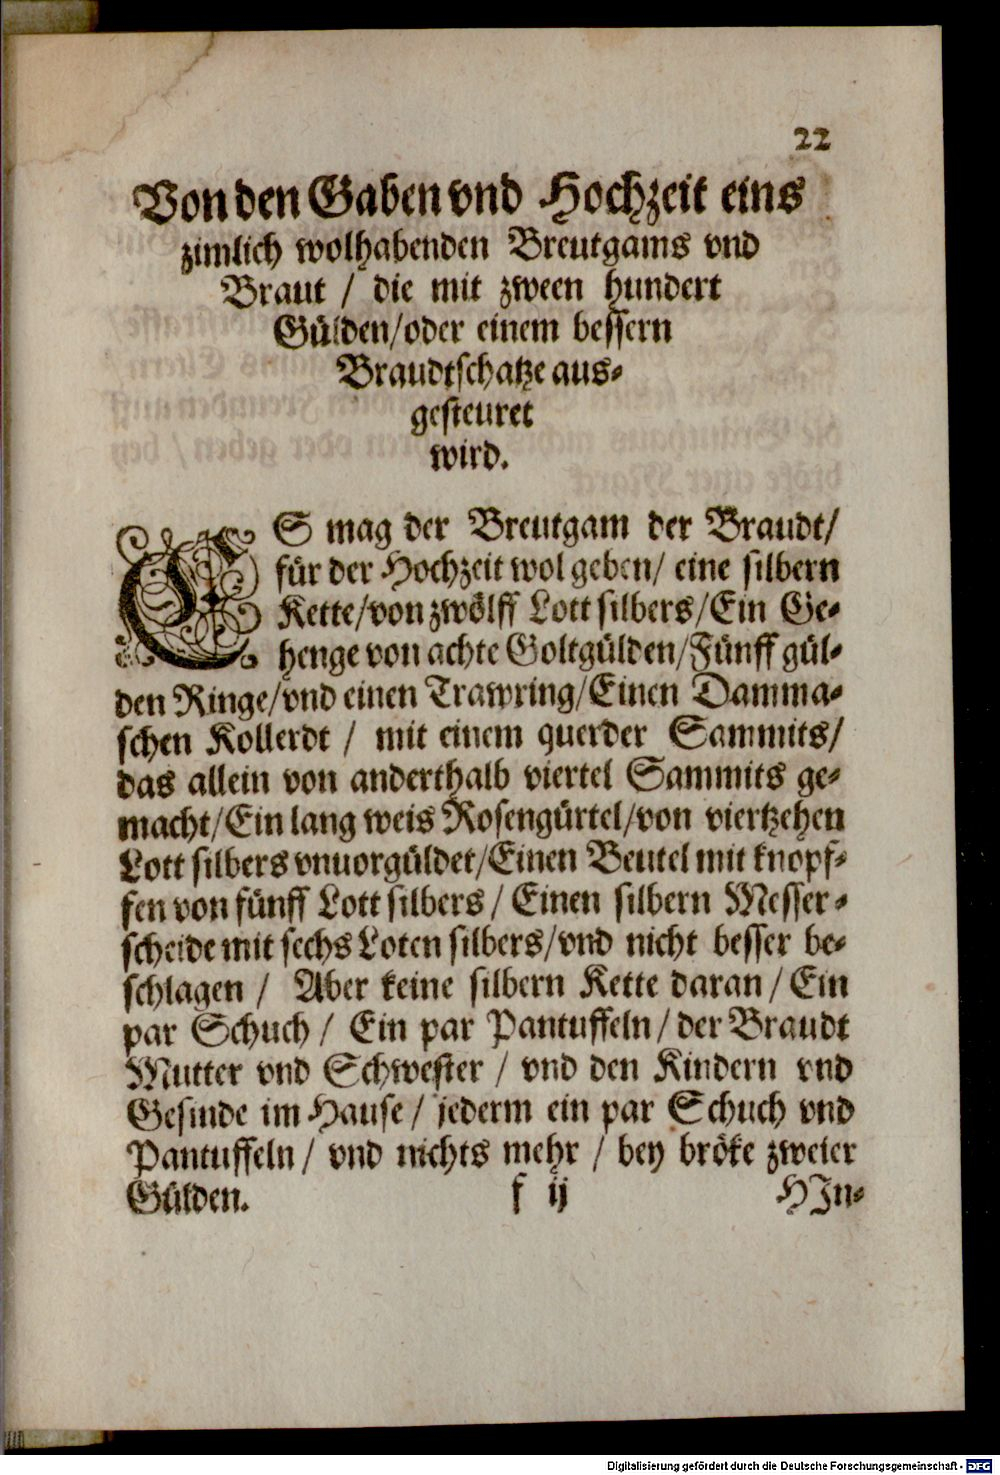 22
Von den Gaben vnd Hochzeit eins
zimlich wolhabenden Breutgams vnd
Braut / die mit zween hundert
Gülden/oder einem bessern
Braudtschatze aus-
gesteuret
wird.
ES mag der Breutgam der Braudt/
für der Hochzeit wol geben/ eine silbern
Kette/von zwölff Lott silbers/Ein Ge-
henge von achte Goltgülden/Fünff gül-
den Ringe/vnd einen Trawring/Einen Damma-
schen Kollerdt / mit einem querder Sammits/
das allein von anderthalb viertel Sammits ge-
macht/Ein lang weis Rosengürtel/von viertzehen
Lott silbers vnuorgüldet/Einen Beutel mit knopf-
fen von fünff Lott silbers / Einen silbern Messer-
scheide mit sechs Loten silbers/vnd nicht besser be-
schlagen / Aber keine silbern Kette daran / Ein
par Schuch / Ein par Pantuffeln / der Braudt
Mutter vnd Schwester / vnd den Kindern vnd
Gesinde im Hause / jederm ein par Schuch vnd
Pantuffeln / vnd nichts mehr / bey bröke zweier
Gülden. f ij HJn-
Digitalisierung gefördert durch die Deutsche Forschungsgemeinschaft - DFG